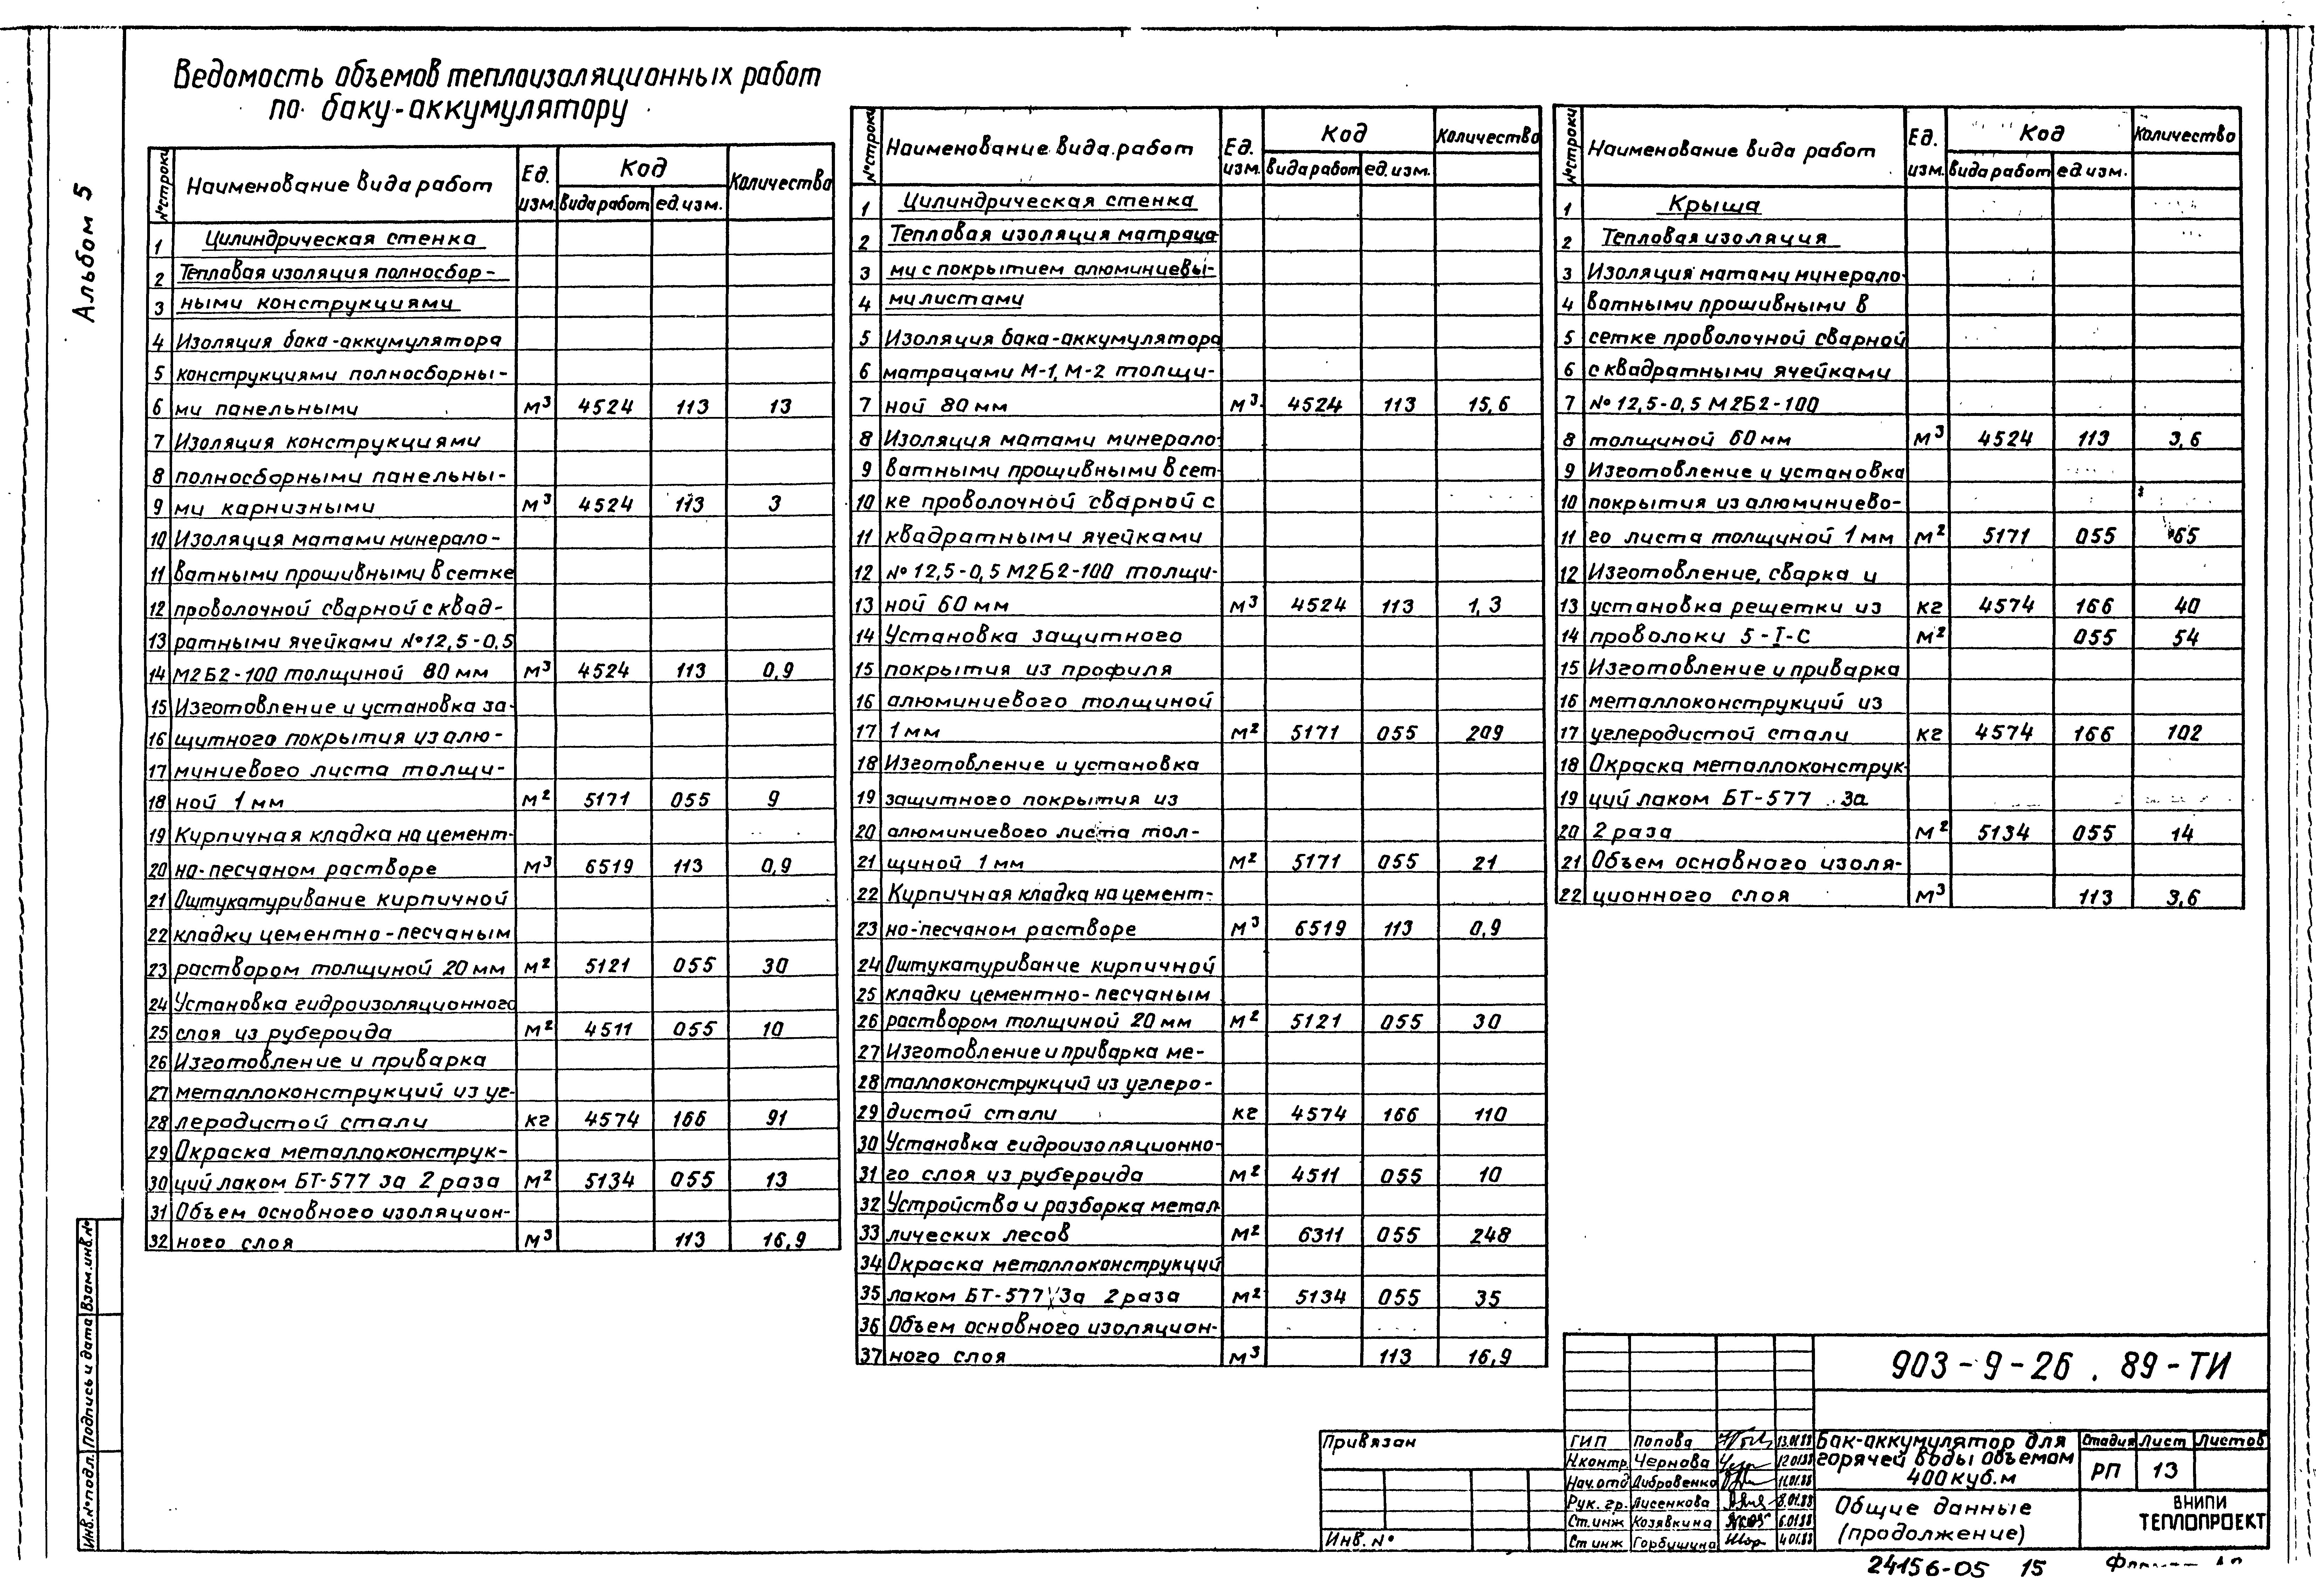 Альбом 5
Ведомость объемов теплоизоляционных работ
по баку-аккумулятору
№ строки Наименование вида работ Ед. изм. Код Количество
вида работ ед. изм.
1 Цилиндрическая стенка
2 Тепловая изоляция полносбор-
3 ными конструкциями
4 Изоляция бака-аккумулятора
5 конструкциями полносборны-
6 ми панельными м³ 4524 113 13
7 Изоляция конструкциями
8 полносборными панельны-
9 ми карнизными м³ 4524 113 3
10 Изоляция матами минерало-
11 ватными прошивными в сетке
12 проволочной сварной с квад-
13 ратными ячейками №12,5-0,5
14 М2Б2-100 толщиной 80 мм м³ 4524 113 0,9
15 Изготовление и установка за-
16 щитного покрытия из алю-
17 миниевого листа толщи-
18 ной 1 мм м² 5171 055 9
19 Кирпичная кладка на цемент-
20 но-песчаном растворе м³ 6519 113 0,9
21 Оштукатуривание кирпичной
22 кладки цементно-песчаным
23 раствором толщиной 20 мм м² 5121 055 30
24 Установка гидроизоляционного
25 слоя из рубероида м² 4511 055 10
26 Изготовление и приварка
27 металлоконструкций из уг-
28 леродистой стали кг 4574 166 91
29 Окраска металлоконструк-
30 ций лаком БТ-577 за 2 раза м² 5134 055 13
31 Объем основного изоляцион-
32 ного слоя м³ 113 16,9
№ строки Наименование вида работ Ед. изм. Код Количество
вида работ ед. изм.
1 Цилиндрическая стенка
2 Тепловая изоляция матраца-
3 ми с покрытием алюминиевы-
4 ми листами
5 Изоляция бака-аккумулятора
6 матрацами М-1, М-2 толщи-
7 ной 80 мм м³ 4524 113 15,6
8 Изоляция матами минерало-
9 ватными прошивными в сет-
10 ке проволочной сварной с
11 квадратными ячейками
12 № 12,5-0,5 М2Б2-100 толщи-
13 ной 60 мм м³ 4524 113 1,3
14 Установка защитного
15 покрытия из профиля
16 алюминиевого толщиной
17 1 мм м² 5171 055 209
18 Изготовление и установка
19 защитного покрытия из
20 алюминиевого листа тол-
21 щиной 1 мм м² 5171 055 21
22 Кирпичная кладка на цемент-
23 но-песчаном растворе м³ 6519 113 0,9
24 Оштукатуривание кирпичной
25 кладки цементно-песчаным
26 раствором толщиной 20 мм м² 5121 055 30
27 Изготовление и приварка ме-
28 таллоконструкций из углеро-
29 дистой стали кг 4574 166 110
30 Установка гидроизоляционно-
31 го слоя из рубероида м² 4511 055 10
32 Устройство и разборка метал-
33 лических лесов м² 6311 055 248
34 Окраска металлоконструкций
35 лаком БТ-577 за 2 раза м² 5134 055 35
36 Объем основного изоляцион-
37 ного слоя м³ 113 16,9
№ строки Наименование вида работ Ед. изм. Код Количество
вида работ ед. изм.
1 Крыша
2 Тепловая изоляция
3 Изоляция матами минерало-
4 ватными прошивными в
5 сетке проволочной сварной
6 с квадратными ячейками
7 № 12,5-0,5 М2Б2-100
8 толщиной 60 мм м³ 4524 113 3,6
9 Изготовление и установка
10 покрытия из алюминиево-
11 го листа толщиной 1 мм м² 5171 055 65
12 Изготовление, сварка и
13 установка решетки из кг 4574 166 40
14 проволоки 5-I-С м² 055 54
15 Изготовление и приварка
16 металлоконструкций из
17 углеродистой стали кг 4574 166 102
18 Окраска металлоконструк-
19 ций лаком БТ-577 за
20 2 раза м² 5134 055 14
21 Объем основного изоля-
22 ционного слоя м³ 113 3,6
Инв. № подл. Подпись и дата Взам. инв. №
Привязан
Инв. №
903-9-26.89-ТИ
ГИП Попова 13.01.88
Н.контр. Чернова 12.01.88
Нач.отд Дибровенко 11.01.88
Рук. гр. Лисенкова 8.01.88
Ст.инж Козявкина 6.01.88
Ст инж Горбушина 4.01.88
Бак-аккумулятор для
горячей воды объемом
400 куб.м
Стадия Лист Листов
РП 13
Общие данные
(продолжение)
ВНИПИ
ТЕПЛОПРОЕКТ
24156-05 15